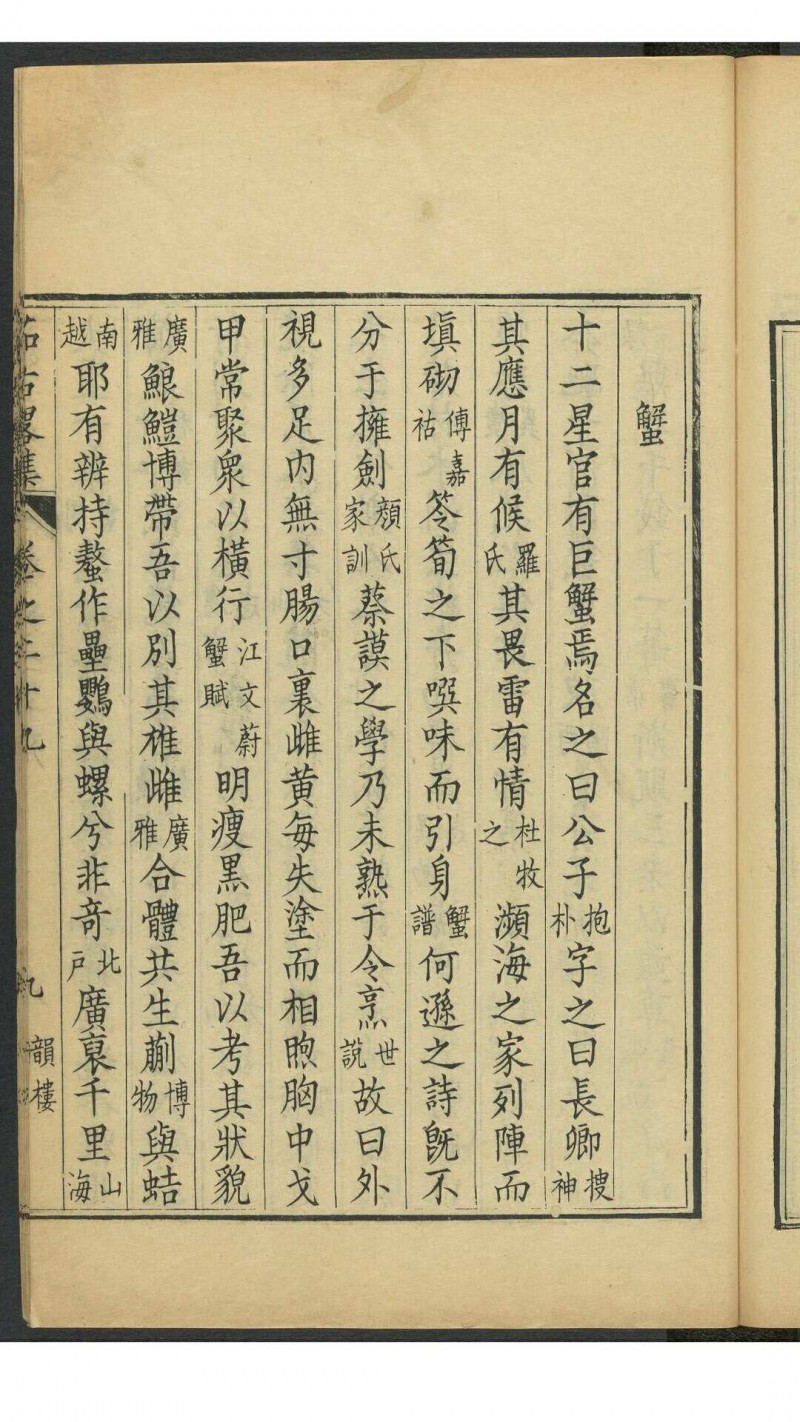 蟹
十二星官有巨蟹焉名之曰公子抱朴字之曰長卿搜神
其應月有候羅氏其畏雷有情杜牧之瀕海之家列陣而
塡砌傅嘉祜笭筍之下噀味而引身蟹譜何遜之詩旣不
分于擁劍顏氏家訓蔡謨之學乃未熟于令烹世說故曰外
視多足內無寸腸口裏雌黃每失塗而相煦胸中戈
甲常聚衆以橫行江文蔚蟹賦明瘦黑肥吾以考其狀貌
廣雅鯸鱧博帶吾以別其雄雌廣雅合體共生蒯博物與蛣
南越耶有辨持螯作壘鸚與螺兮非奇北戶廣袤千里山海
茹古畧集 卷之二十九 九 韻樓